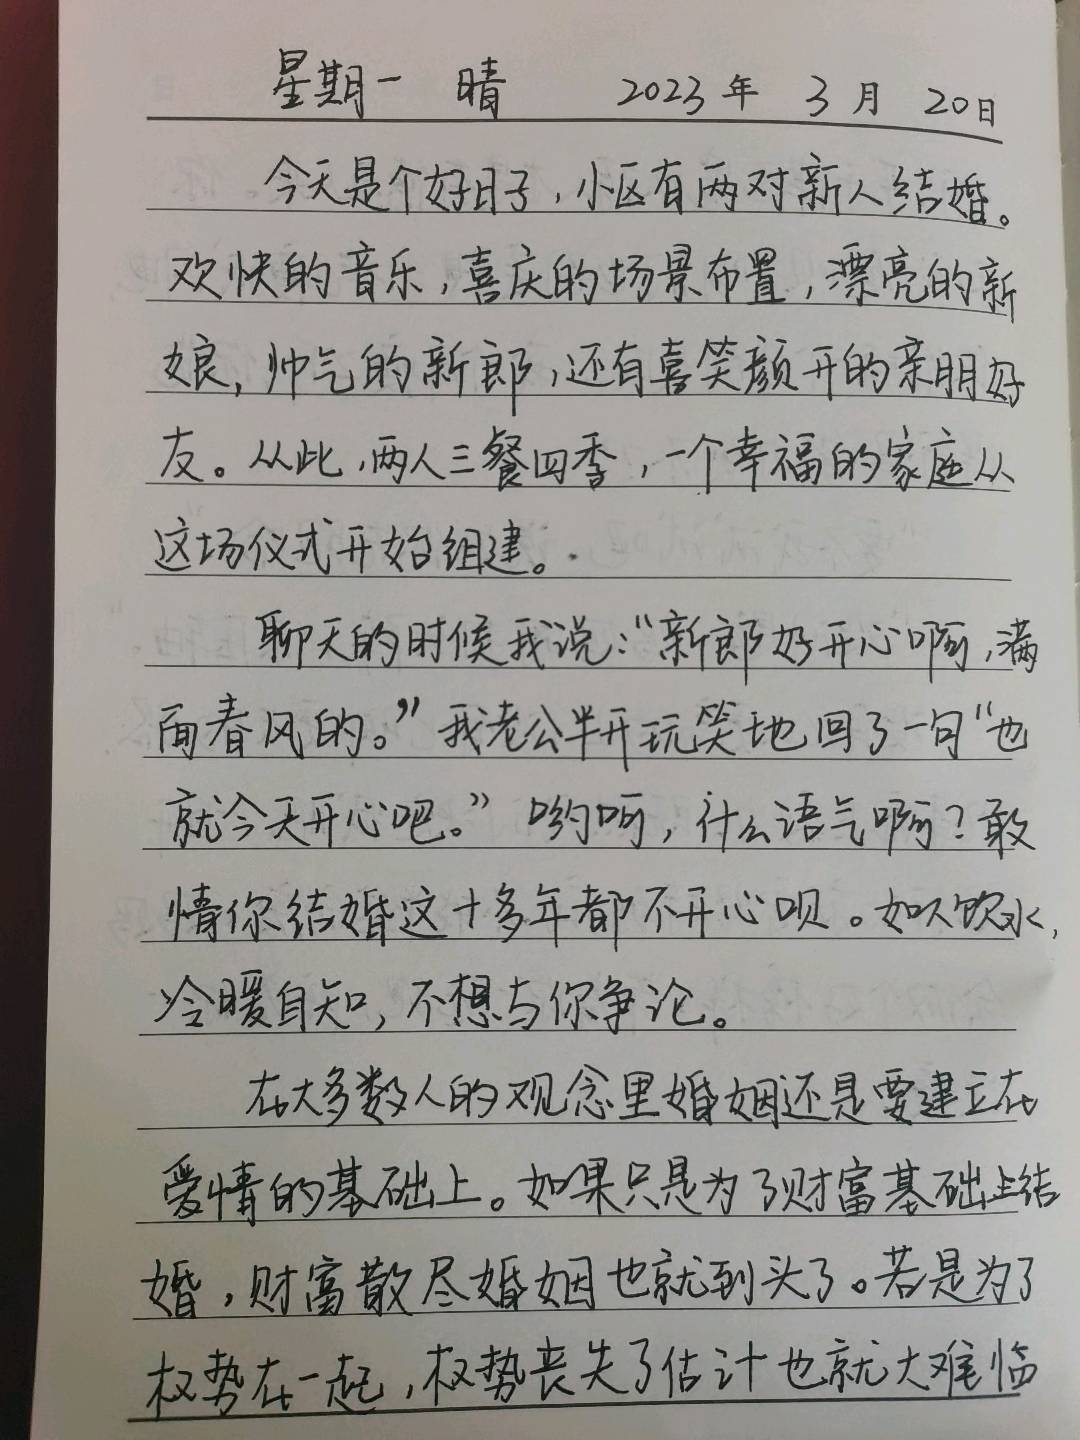 星期一 晴 2023年 3月 20日
今天是个好日子，小区有两对新人结婚。
欢快的音乐，喜庆的场景布置，漂亮的新
娘，帅气的新郎，还有喜笑颜开的亲朋好
友。从此，两人三餐四季，一个幸福的家庭从
这场仪式开始组建。
聊天的时候我说：“新郎好开心啊，满
面春风的。”我老公半开玩笑地回了一句“也
就今天开心吧。”哟呵，什么语气啊？敢
情你结婚这十多年都不开心呗。如人饮水，
冷暖自知，不想与你争论。
在大多数人的观念里婚姻还是要建立在
爱情的基础上。如果只是为了财富基础上结
婚，财富散尽婚姻也就到头了。若是为了
权势在一起，权势丧失了估计也就大难临